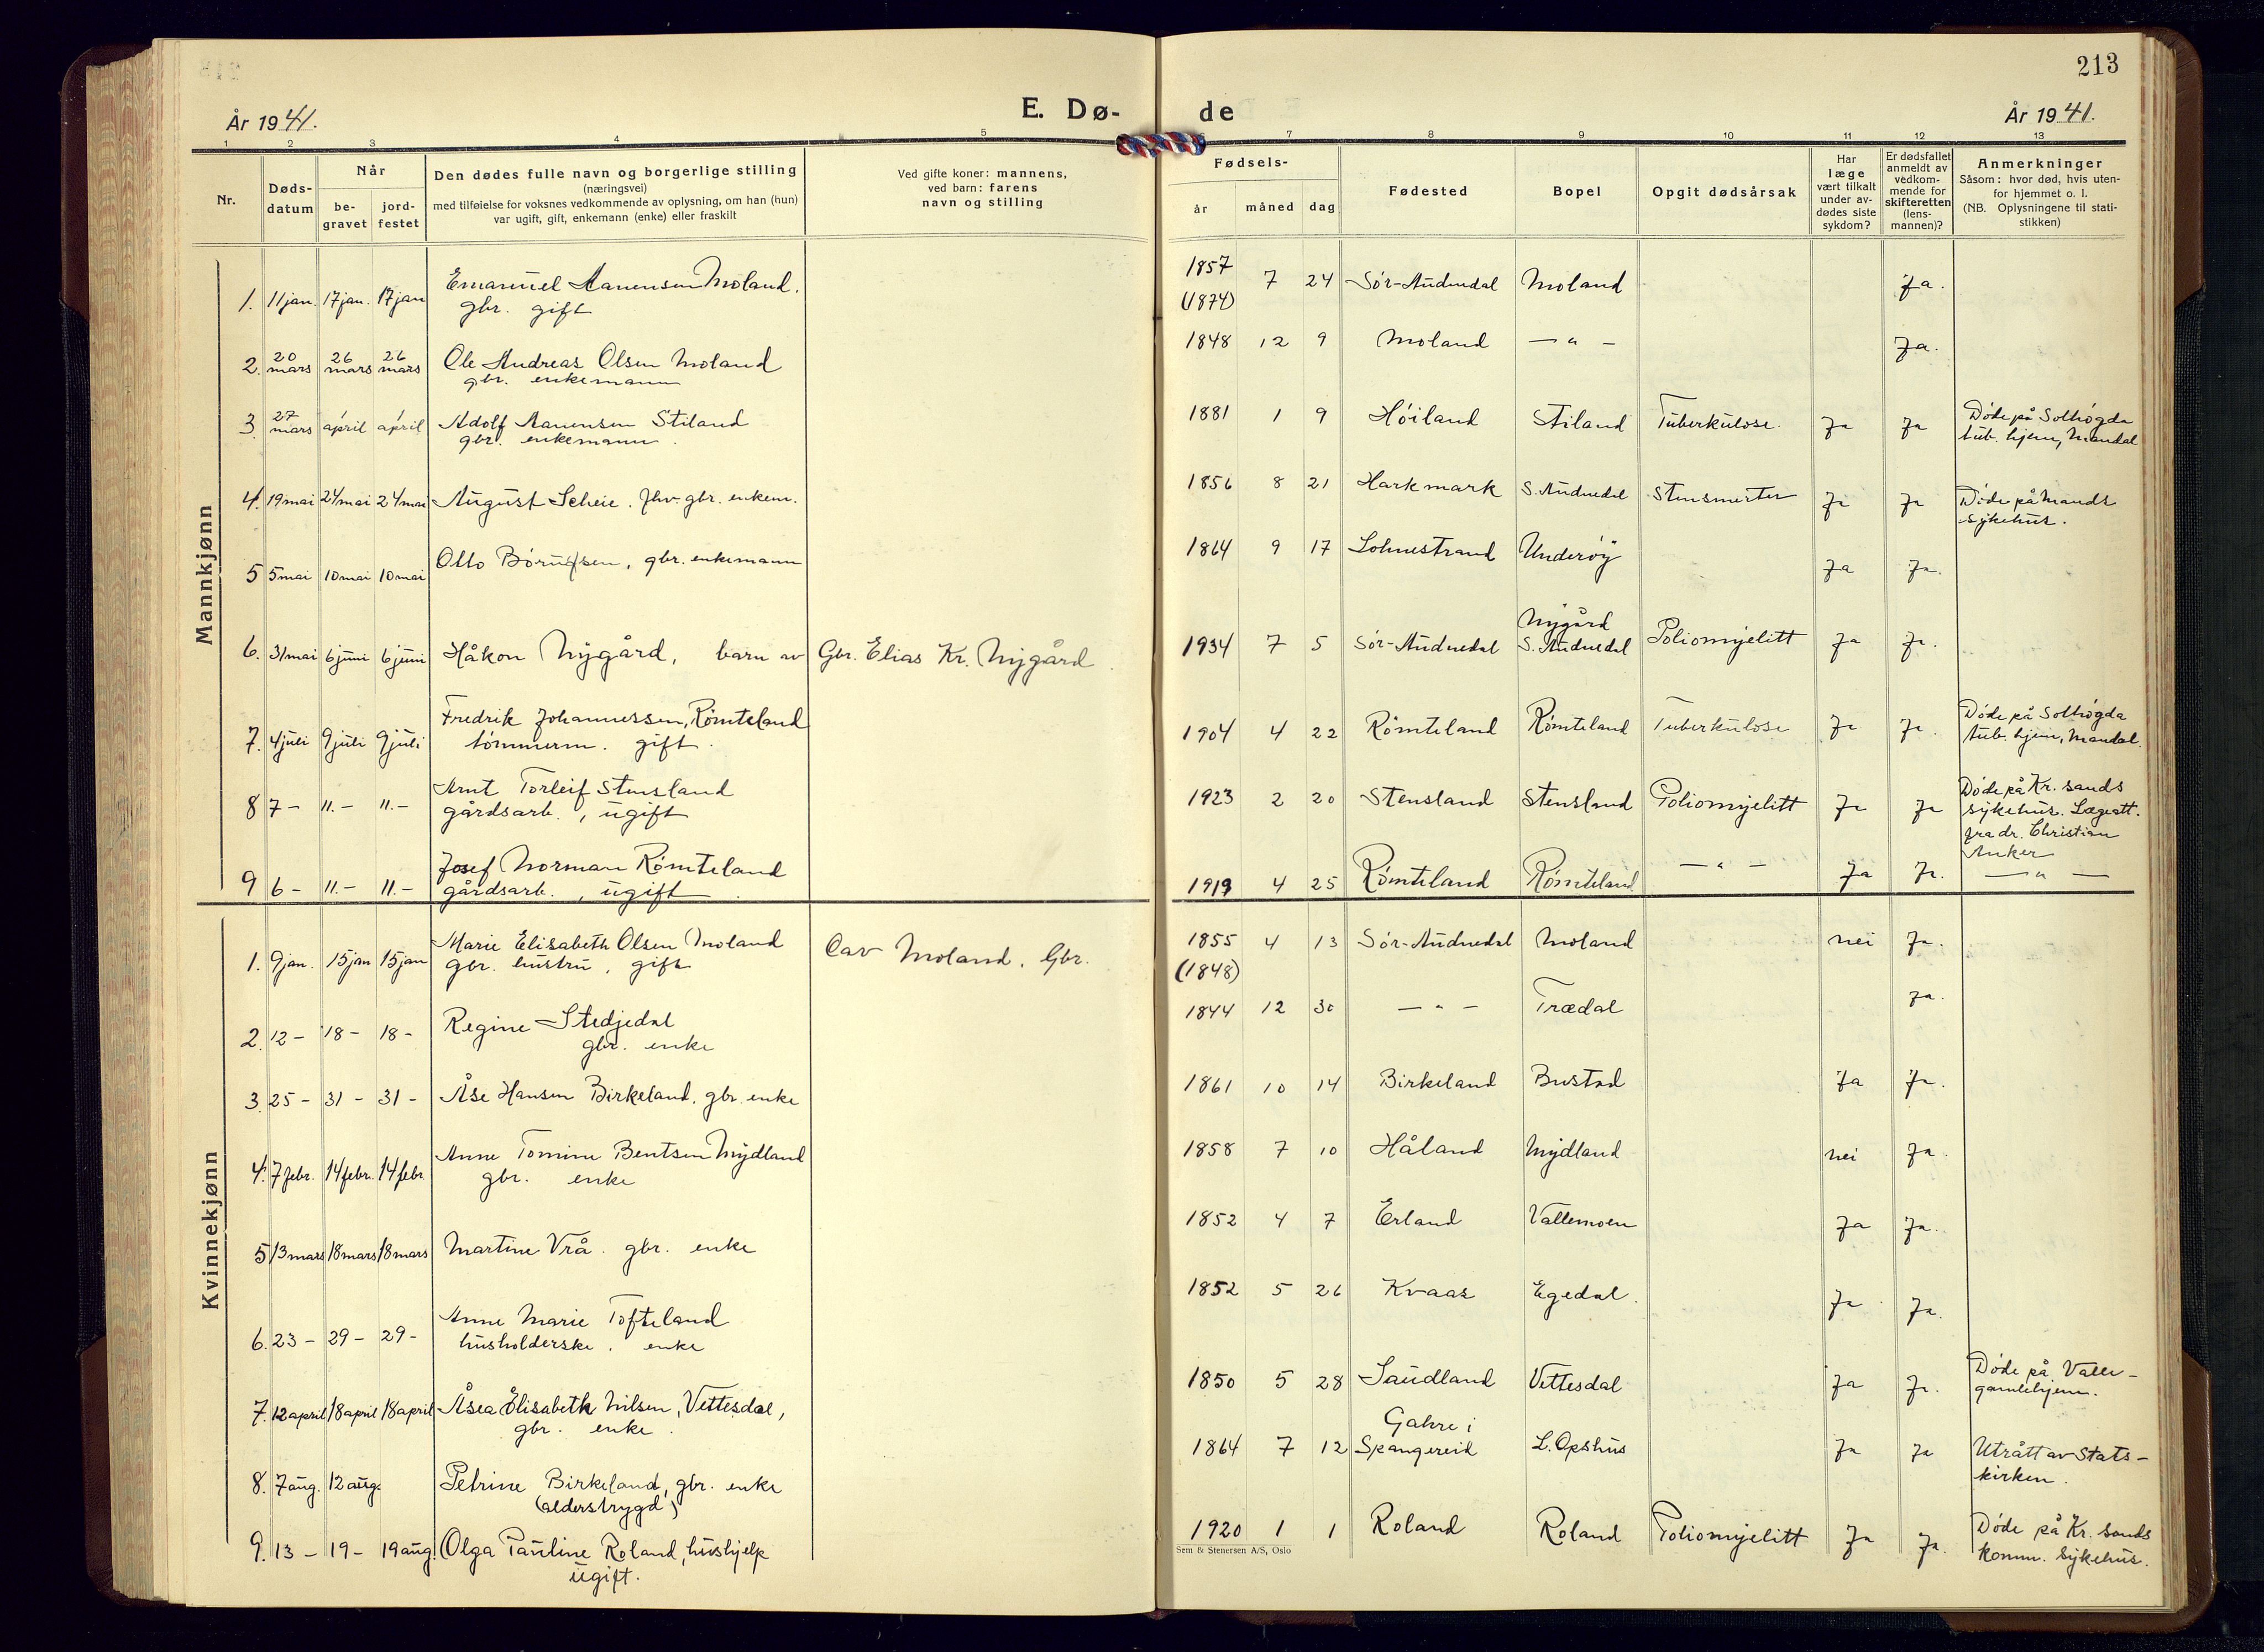 213
År 1941.
E. Dø-
de
År 1941.
1 2 3 4 5 7 8 9 10 11 12 13
Nr.
Døds-
datum
Når
be-
gravet
jord-
festet
Den dødes fulle navn og borgerlige stilling
(næringsvei)
med tilføielse for voksnes vedkommende av oplysning, om han (hun)
var ugift, gift, enkemann (enke) eller fraskilt
Ved gifte koner: mannens,
ved barn: farens
navn og stilling
Fødsels-
år måned dag
Fødested
Bopel
Opgit dødsårsak
Har
læge
vært tilkalt
under av-
dødes siste
sykdom?
Er dødsfallet
anmeldt av
vedkom-
mende for
skifteretten
(lens-
mannen)?
Anmerkninger
Såsom: hvor død, hvis uten-
for hjemmet o. l.
(NB. Oplysningene til stati-
stikken)
Mannkjønn
1. 11 jan. 17 jan. 17 jan Emanuel Aanensen Moland. 1857 7 24 Sør-Audnedal Moland ja.
gbr. gift (1874)
2. 20 mars 26 mars 26 mars Ole Andreas Olsen Moland 1848 12 9 Moland — " — Ja.
gbr. enkemann
3. 27 mars 1 april 1 april Adolf Aanensen Stiland 1881 1 9 Høiland Stiland Tuberkulose. Ja Ja Døde på Solhøgda
gbr. enkemann. tub. hjem, Mandal
4. 19 mai 24 mai 24 mai August Scheie. fhv. gbr. enkem. 1856 8 21 Harkmark S. Audnedal Stensmerter Ja Ja Døde på Mandls
sykehus.
5 5 mai 10 mai 10 mai Otto Børufsen, gbr. enkemann 1864 9 17 Lohnestrand Underøy Ja Ja.
6. 31 mai 6 juni 6 juni Håkon Nygård, barn av Gbr. Elias Kr. Nygård 1934 7 5 Sør-Audnedal Nygård
S. Audnedal Poliomyelitt Ja Ja.
7. 4 juli 9 juli 9 juli Fredrik Johannessen, Rømteland 1904 4 22 Rømteland Rømteland Tuberkulose Ja Ja. Døde på Solhøgda
tømmerm. gift. tub. hjem, Mandal.
8 7 - 11. - 11. - Arnt Torleif Stensland 1923 2 20 Stensland Stensland Poliomyelitt Ja Ja Døde på Kr. sands
gårdsarb., ugift sykehus. Lægeatt.
fra dr. Christian
Anker
9 6 - 11. - 11. - Josef Norman Rømteland 1919 4 25 Rømteland Rømteland — " — Ja Ja. — " —
gårdsarb., ugift.
Kvinnekjønn
1. 9 jan. 15 jan 15 jan Marie Elisabeth Olsen Moland Oav Moland. Gbr. 1855 4 13 Sør-Audnedal Moland nei Ja.
gbr. hustru, gift (1848)
2. 12 - 18 - 18 - Regine Stedjedal 1844 12 30 — " — Trædal Ja.
gbr. enke
3. 25 - 31 - 31 - Åse Hansen Birkeland. gbr. enke 1861 10 14 Birkeland Bustad Ja Ja.
4. 7 febr. 14 febr. 14 febr. Anne Tomine Bentsen Mydland 1858 7 10 Håland Mydland nei Ja.
gbr. enke
5 13 mars 18 mars 18 mars Martine Vrå. gbr. enke 1852 4 7 Erland Vallemoen Ja Ja.
6. 23 - 29 - 29 - Anne Marie Tofteland 1852 5 26 Kvaas Egedal. Ja Ja.
husholderske. enke
7. 12 april 18 april 18 april Åsea Elisabeth Nilsen, Vettesdal, 1850 5 28 Saudland Vettesdal Ja Ja. Døde på Valle-
gbr. enke. gamlehjem.
8. 7 aug. 12 aug. Petrine Birkeland, gbr. enke 1864 7 12 Gahre i
Spangereid L. Opshus Ja Ja Utrått av Stats-
(alderstrygd) kirken.
9. 13 - 19 - 19 aug. Olga Pauline Roland, hushjelp 1920 1 1 Roland Roland Poliomyelitt Ja Ja. Døde på Kr. sands
ugift. komm. sykehus.
Sem & Stenersen A/S, Oslo